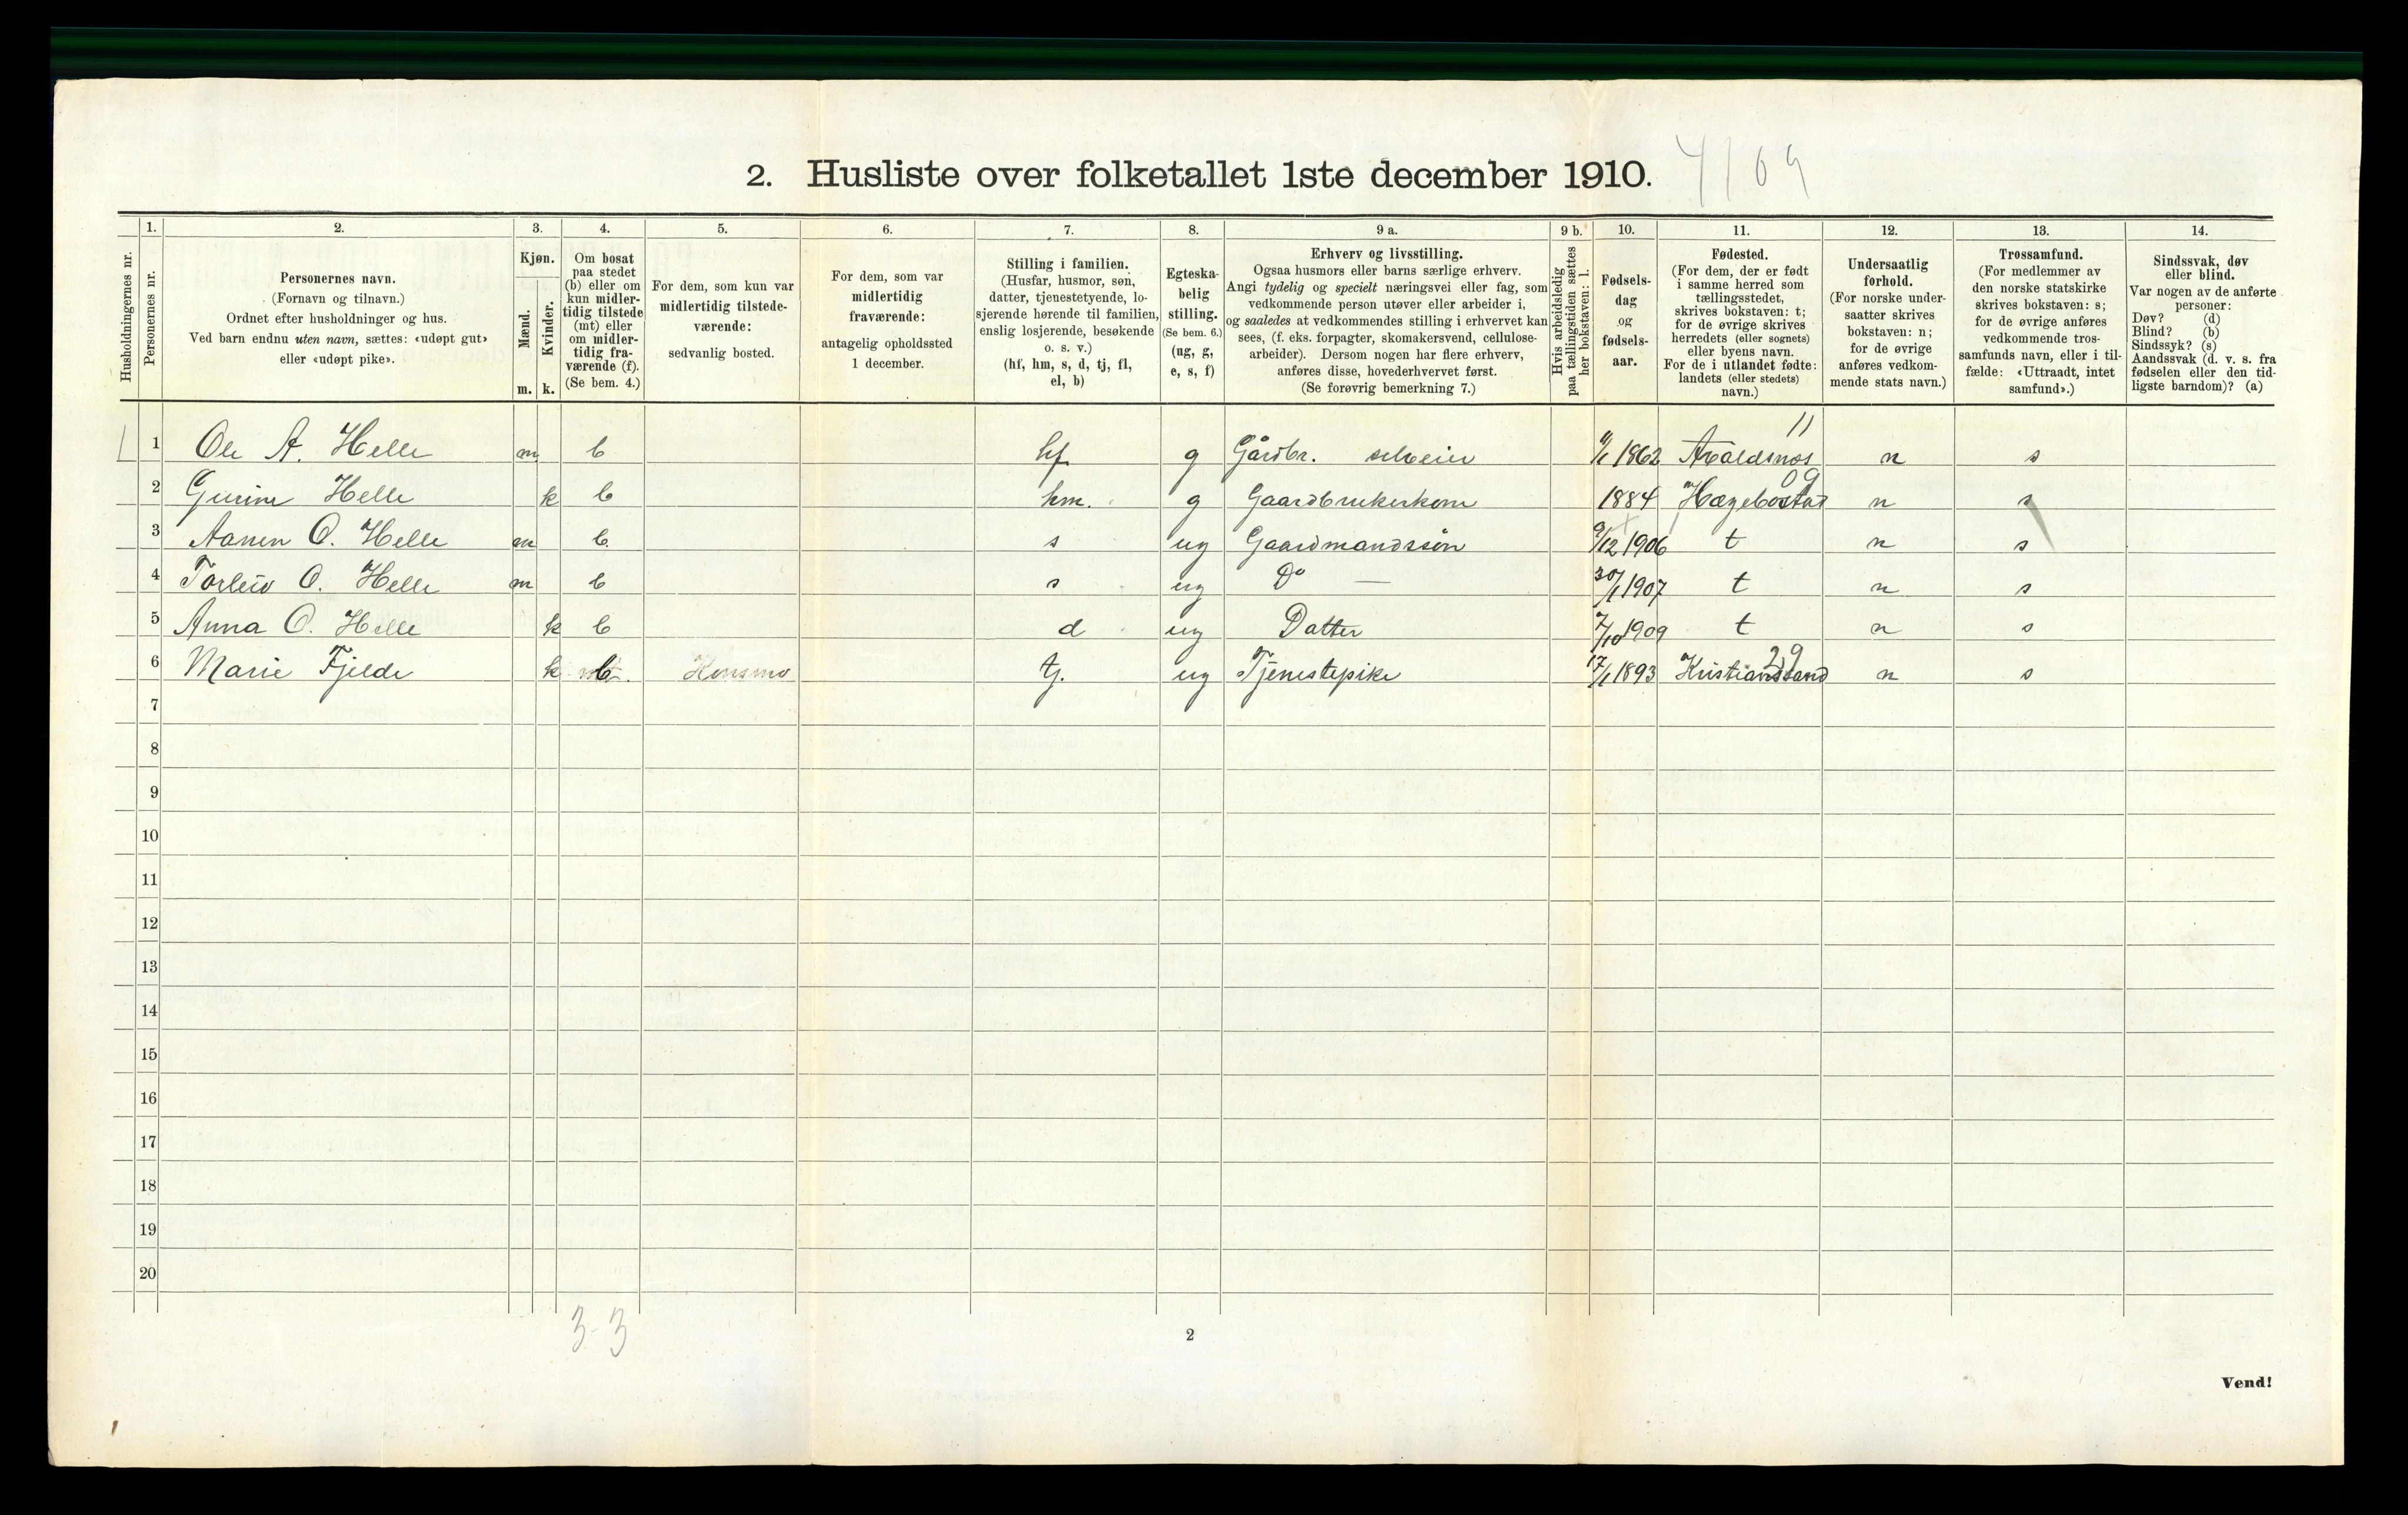 2. Husliste over folketallet 1ste december 1910. 4109
Husholdningernes nr.
1. Personernes nr.
2. Personernes navn. (Fornavn og tilnavn.) Ordnet efter husholdninger og hus. Ved barn endnu uten navn, sættes: «udøpt gut» eller «udøpt pike».
3. Kjøn. Mænd. m. Kvinder. k.
4. Om bosat paa stedet (b) eller om kun midlertidig tilstede (mt) eller om midlertidig fraværende (f). (Se bem. 4.)
5. For dem, som kun var midlertidig tilstedeværende: sedvanlig bosted.
6. For dem, som var midlertidig fraværende: antagelig opholdssted 1 december.
7. Stilling i familien. (Husfar, husmor, søn, datter, tjenestetyende, losjerende hørende til familien, enslig losjerende, besøkende o. s. v.) (hf, hm, s, d, tj, fl, el, b)
8. Egteskabelig stilling. (Se bem. 6.) (ug, g, e, s, f)
9 a. Erhverv og livsstilling. Ogsaa husmors eller barns særlige erhverv. Angi tydelig og specielt næringsvei eller fag, som vedkommende person utøver eller arbeider i, og saaledes at vedkommendes stilling i erhvervet kan sees, (f. eks. forpagter, skomakersvend, cellulosearbeider). Dersom nogen har flere erhverv, anføres disse, hovederhvervet først. (Se forøvrig bemerkning 7.)
9 b. Hvis arbeidsledig paa tællingstiden sættes her bokstaven: l.
10. Fødselsdag og fødselsaar.
11. Fødested. (For dem, der er født i samme herred som tællingsstedet, skrives bokstaven: t; for de øvrige skrives herredets (eller sognets) eller byens navn. For de i utlandet fødte: landets (eller stedets) navn.)
12. Undersaatlig forhold. (For norske undersaatter skrives bokstaven: n; for de øvrige anføres vedkommende stats navn.)
13. Trossamfund. (For medlemmer av den norske statskirke skrives bokstaven: s; for de øvrige anføres vedkommende trossamfunds navn, eller i tilfælde: «Uttraadt, intet samfund».)
14. Sindssvak, døv eller blind. Var nogen av de anførte personer: Døv? (d) Blind? (b) Sindssyk? (s) Aandssvak (d. v. s. fra fødselen eller den tidligste barndom)? (a)
1 Ole A. Helle m b hf g Gårdbr. selveier 1862 Avaldsnes 11 n s
2 Gurine Helle k b hm. g Gaardbrukerkone 1884 Hægebostad 09 n s
3 Aanen O. Helle m b s ug Gaardmandssøn 9/12 1906 t n s
4 Torleiv O. Helle m b s ug Do — 30/1 1907 t n s
5 Anna O. Helle k b d ug Datter 7/10 1909 t n s
6 Marie Fjelde k b Konsmo tj. ug Tjenestepike 17/1 1893 Kristianssand 29 n s
7
8
9
10
11
12
13
14
15
16
17
18
19
20
3-3
2
Vend!